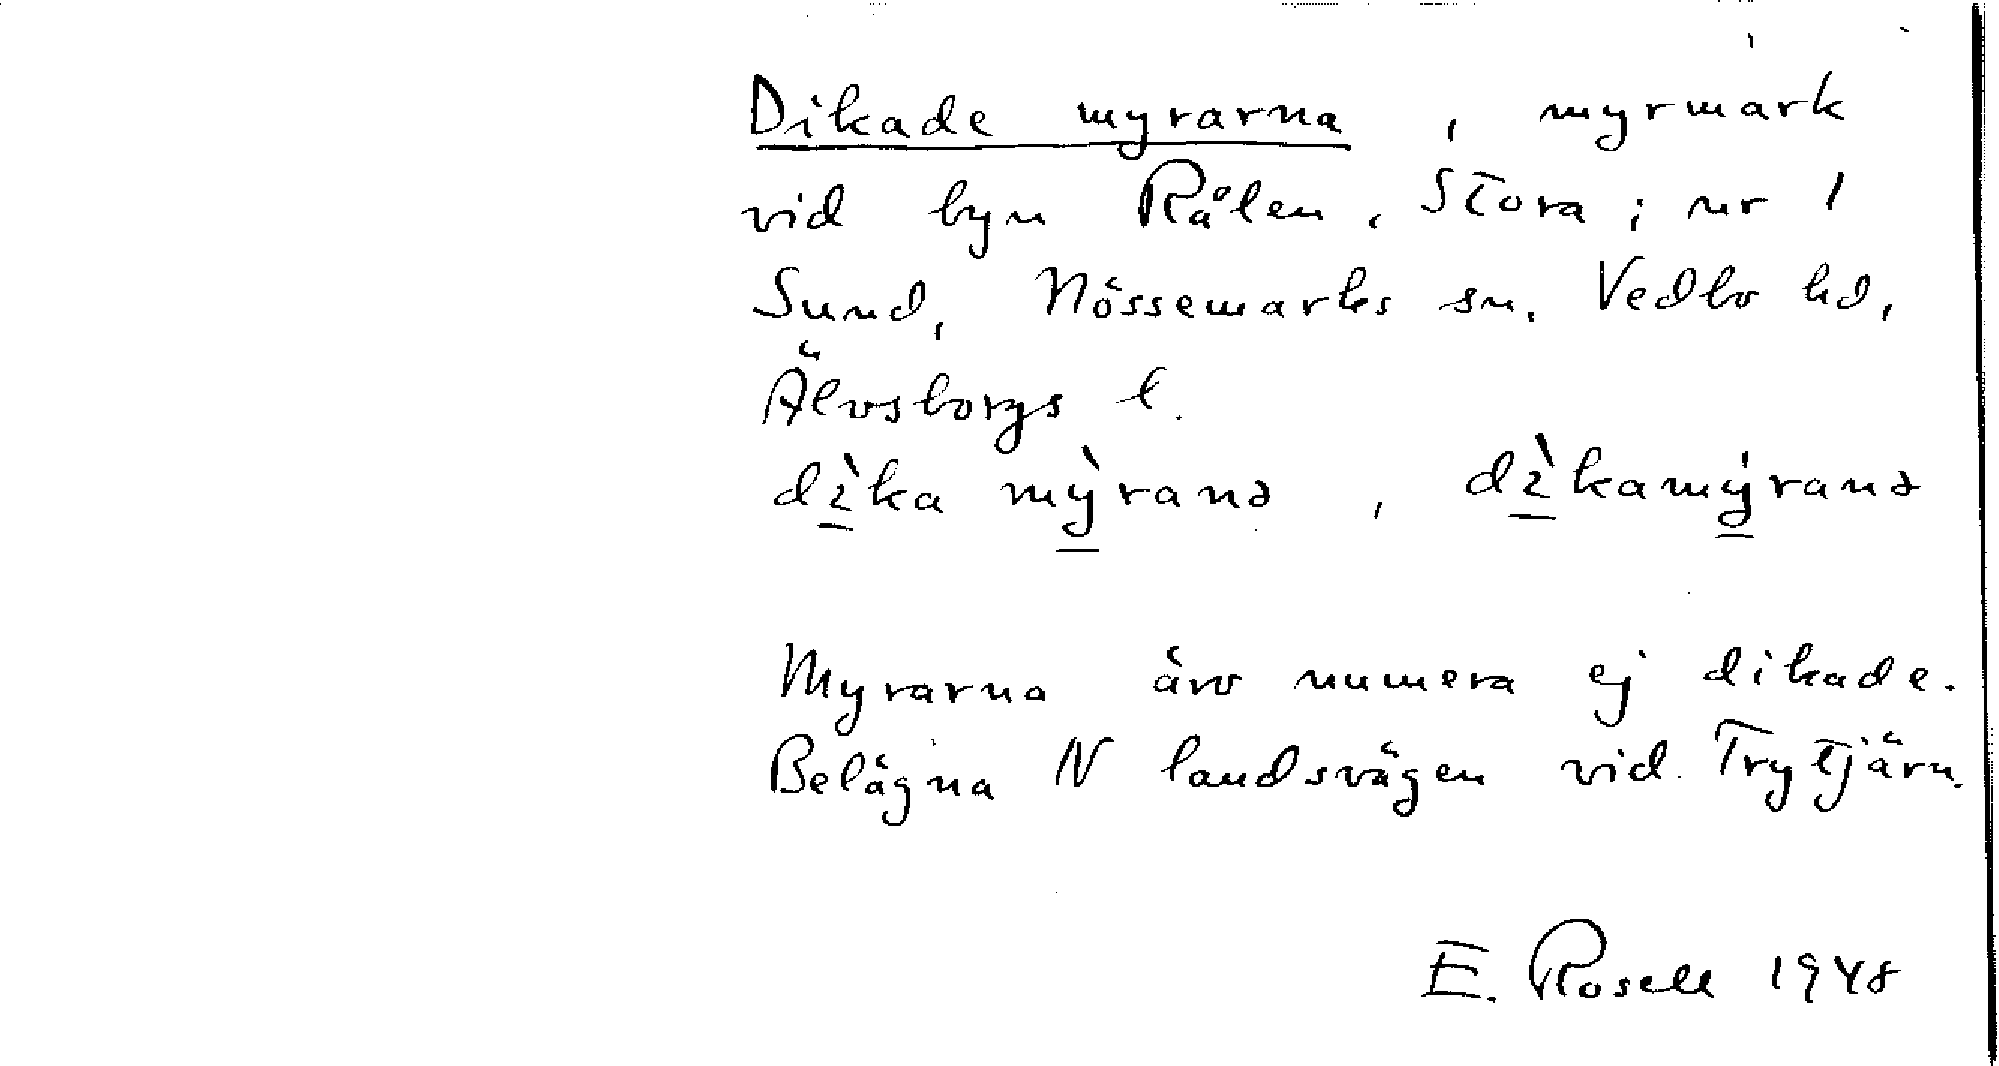 Dikade myrarna, myrmark
vid byn Rålen, Stora; nr 1
Sund, Nössemarks sn. Vedbo hd,
Älvsborgs l.
dı̀ka mỳranə, dı̀kamýranə
Myrarna äro numera ej dikade.
Belägna N landsvägen vid Trytjärn.
E. Rosell 1948